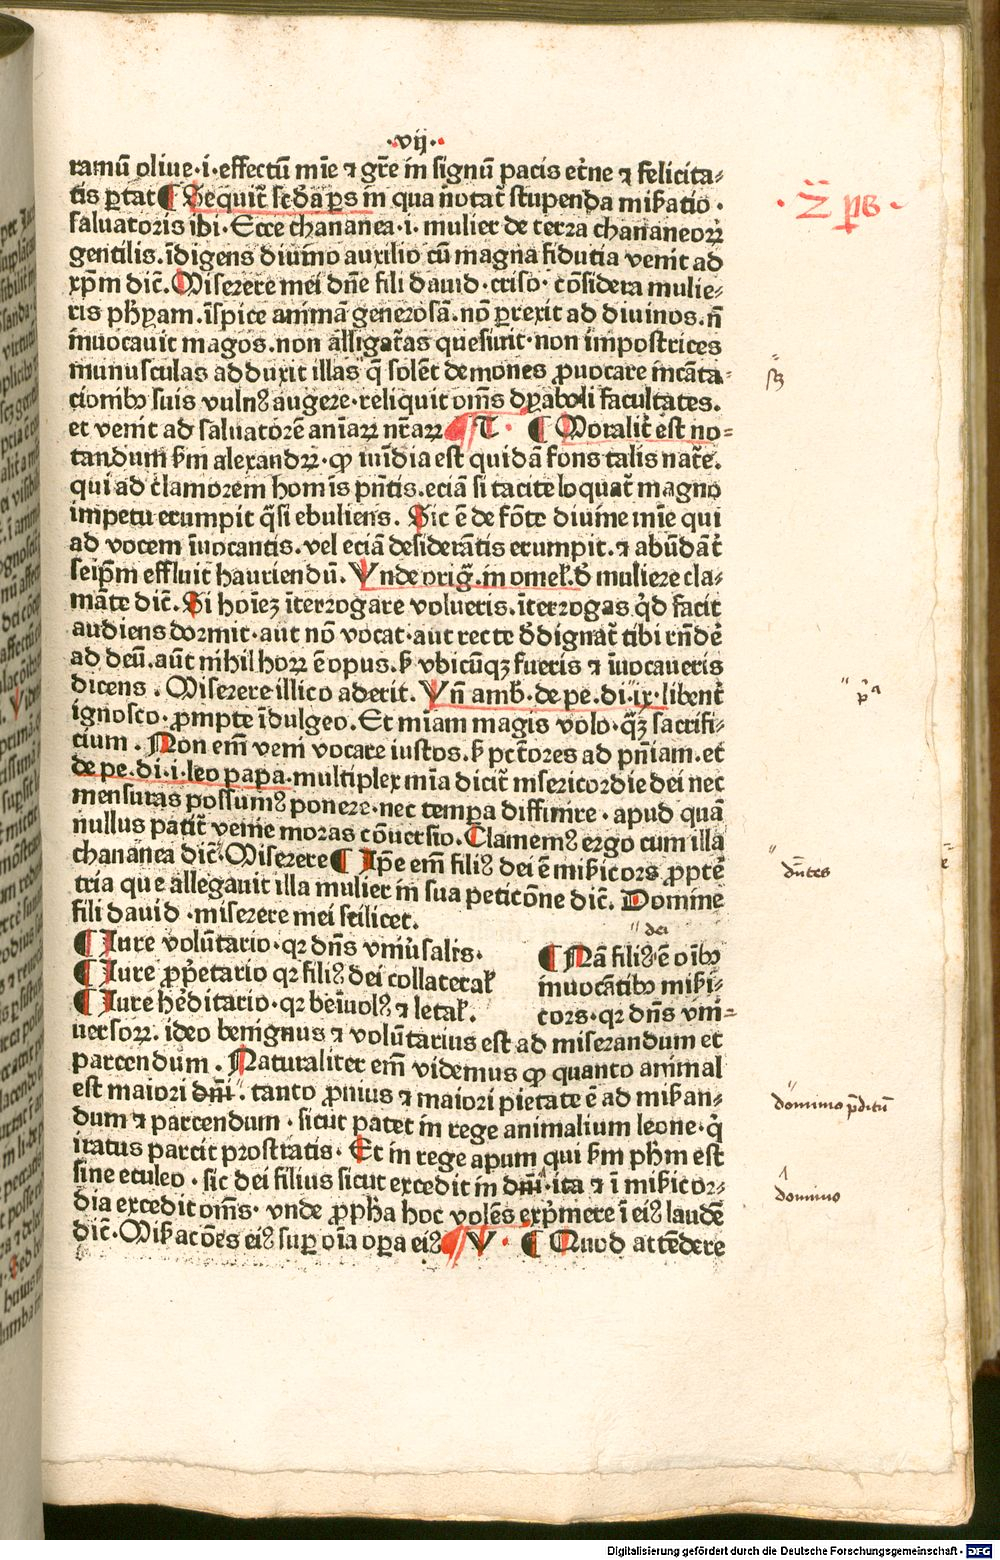 ·vij·
ramū oliue·i·effectū mīe ⁊ gr̄e in signū pacis et̉ne ⁊ felicita⸗
tis ꝑtat ¶ Sequit̄ sc̄ da ꝑs in qua notat̄ stupenda mīẜatio·
saluatoris ibi·Ecce chananea·i· mulier de terra chananeoꝝ
gentilis.īdigens diuino auxilio cū magna fidutia venit ad
xp̄m dic̄.Miserere mei dn̄e fili dauid·criso· cōsidera mulie⸗
ris ph̄yam.īspice animā generosā.nō ꝑrexit ad diuinos.n̄
inuocauit magos.non alligat̄as quesiuit·non impostrices
munusculas adduxit illas q̄ solēt demones ꝓuocare incāta⸗
cionibꝰ suis vulnꝰ augere·reliquit om̄s dyaboli facultates.
et venit ad saluatorē anīaꝝ nr̄aꝝ T· ¶ Moralit̄ est no⸗
tandum ẜm alexandꝝ·ꝙ in īdia est quidā fons talis nat̄e.
qui ad clamorem homīs pn̄tis.eciā si tacite loquat̄ magno
impetu erumpit q̄si ebuliens. Sic ē de fōte diuine mīe qui
ad vocem īuocantis.vel eciā desiderātis erumpit.⁊ abūdāt̄
seip̄m effluit hauriendū.Vnde orig̃.in omel.ď muliere cla⸗
māte dic̄.Si hoīeꝫ īterrogare volueris.īterrogas qͥd facit
audiens dormit·aut nō vocat·aut recte ďdignat̄ tibi rn̄dē
ad deū.aūt nihil hoꝝ ē opus.ẜ vbicūqꝫ fueris ⁊ īuocaueris
dicens.Miserere illico aderit. Vn̄ amb̄.de pe.di·ix·libent̄
ignosco·ꝓmpte īdulgeo.Et mīam magis volo·q̄ꝫ sacrifi⸗
cium.Non em̄ veni vocare iustos.ẜ pctōres ad pn̄iam.et
de pe.di·i·leo papa·multiplex mīa dicit̄ misericordie dei nec
mensuras possumꝰ ponere·nec tempa diffinire·apud quā
nullus patit̄ venie moras cōuersio.Clamemꝰ ergo cum illa
chananea dic̄·Miserere ¶ Ip̄e em̄ filiꝰ dei ē mīẜicors ꝓpt̄ē
tria que allegauit illa mulier in sua peticōne dic̄. Domine
fili dauid·miserere mei scilicet.
¶ Iure volūtario·qꝛ dn̄s vniu̓salis·
¶ Iure ꝓp̄etario qꝛ filiꝰ dei collateraꝉ
¶ Iure he̓ditario·qꝛ beīuolꝰ ⁊ letaꝉ.
dei
¶ Nā filiꝰ ē oībꝰ
inuocātibꝰ mīẜi⸗
cors·qꝛ dn̄s vni⸗
uersoꝝ. ideo benignus ⁊ volūtarius est ad miserandum et
parcendum. Naturaliter em̄ videmus ꝙ quanto animal
est maiori dn̄ii·tanto ꝓnius ⁊ maiori pietate ē ad mīẜan⸗
dum ⁊ parcendum·sicut patet in rege animalium leone·q̄
iratus parcit prostratis·Et in rege apum qui ẜm ph̄m est
sine aculeo·sic dei filius sicut excedit in dn̄ii·ita ⁊ ī mīẜicor⸗
dia excedit om̄s·vnde ꝓpħa hoc volēs exp̄mere ī eiꝰ laudē
dic̄·Mīẜacōes eiꝰ suꝑ oīa oꝑa eiꝰ V· ¶ Quod attēdere
·2 ps·
dn̄tes
domino p̄ditū
domino
Digitalisierung gefördert durch die Deutsche Forschungsgemeinschaft - DFG